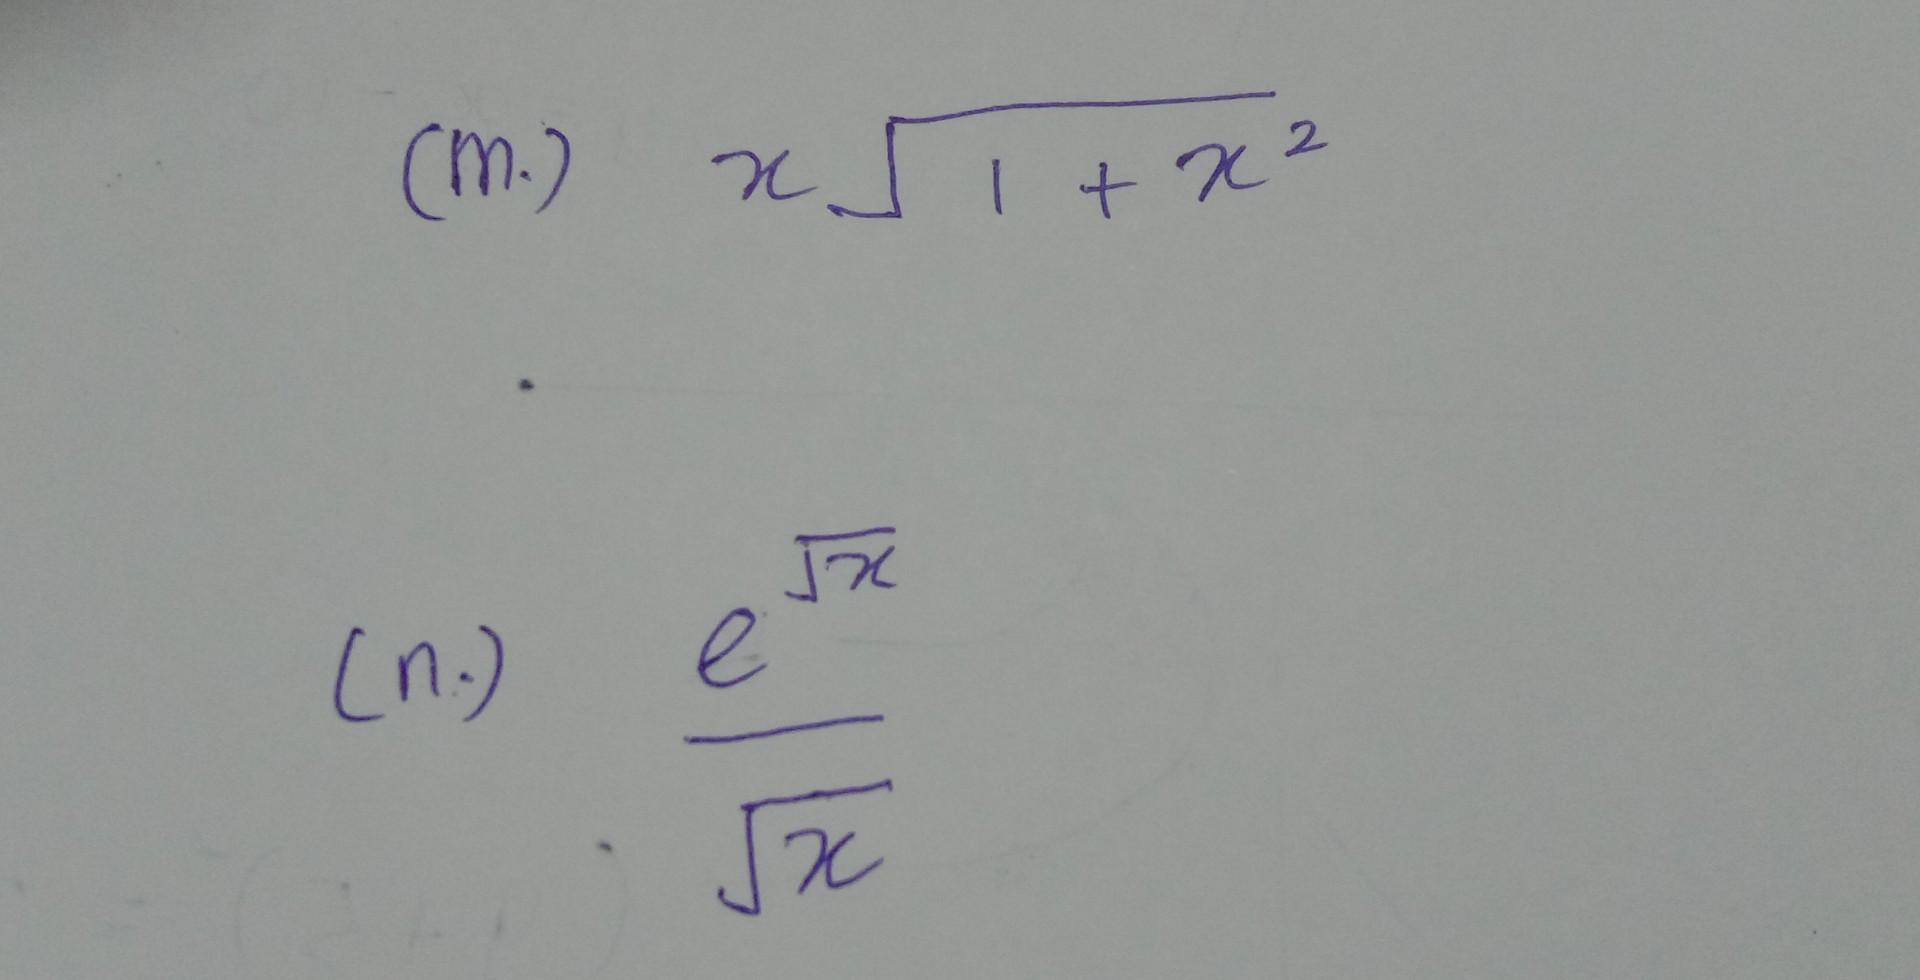 (m.) x√1 + x²
(n.) e^√x
√x